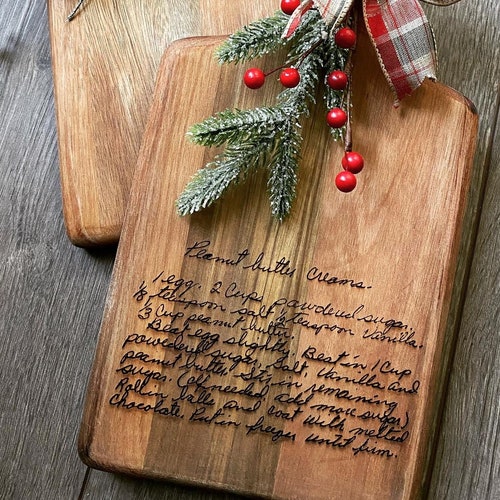 Peanut butter Creams.
1 egg. 2 Cups powdered sugar.
1/8 teaspoon salt 1/2 teaspoon Vanilla.
1/3 Cup peanut butter.
Beat egg slightly. Beat in 1 Cup
powdered sugar, Salt, Vanilla and
peanut butter. Stir in remaining
sugar. (if needed, add more sugar)
Roll in balls and coat with melted
Chocolate. Put in freezer until firm.